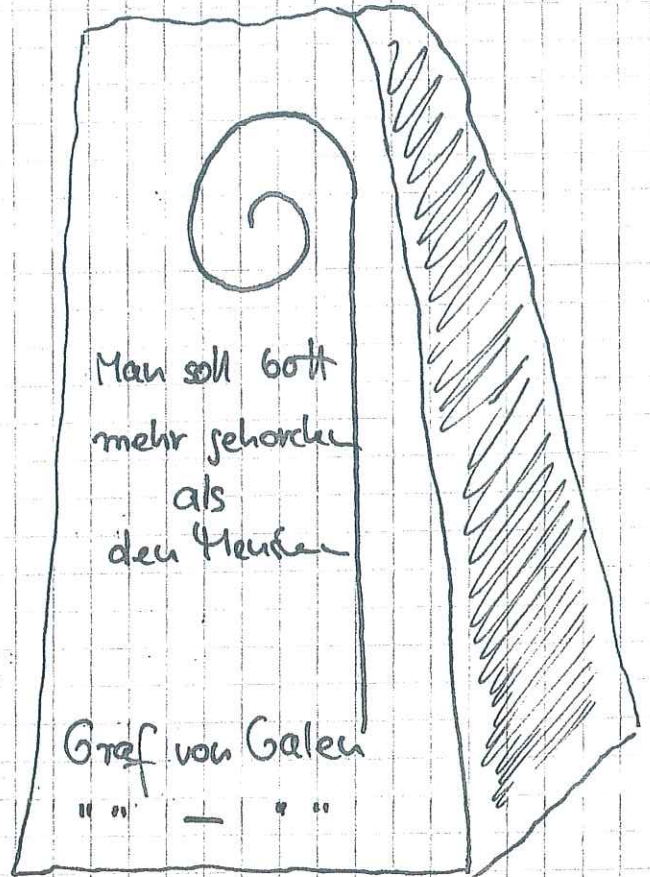 Man soll Gott
mehr gehorchen
als
den Menschen
Graf von Galen
" " — " "